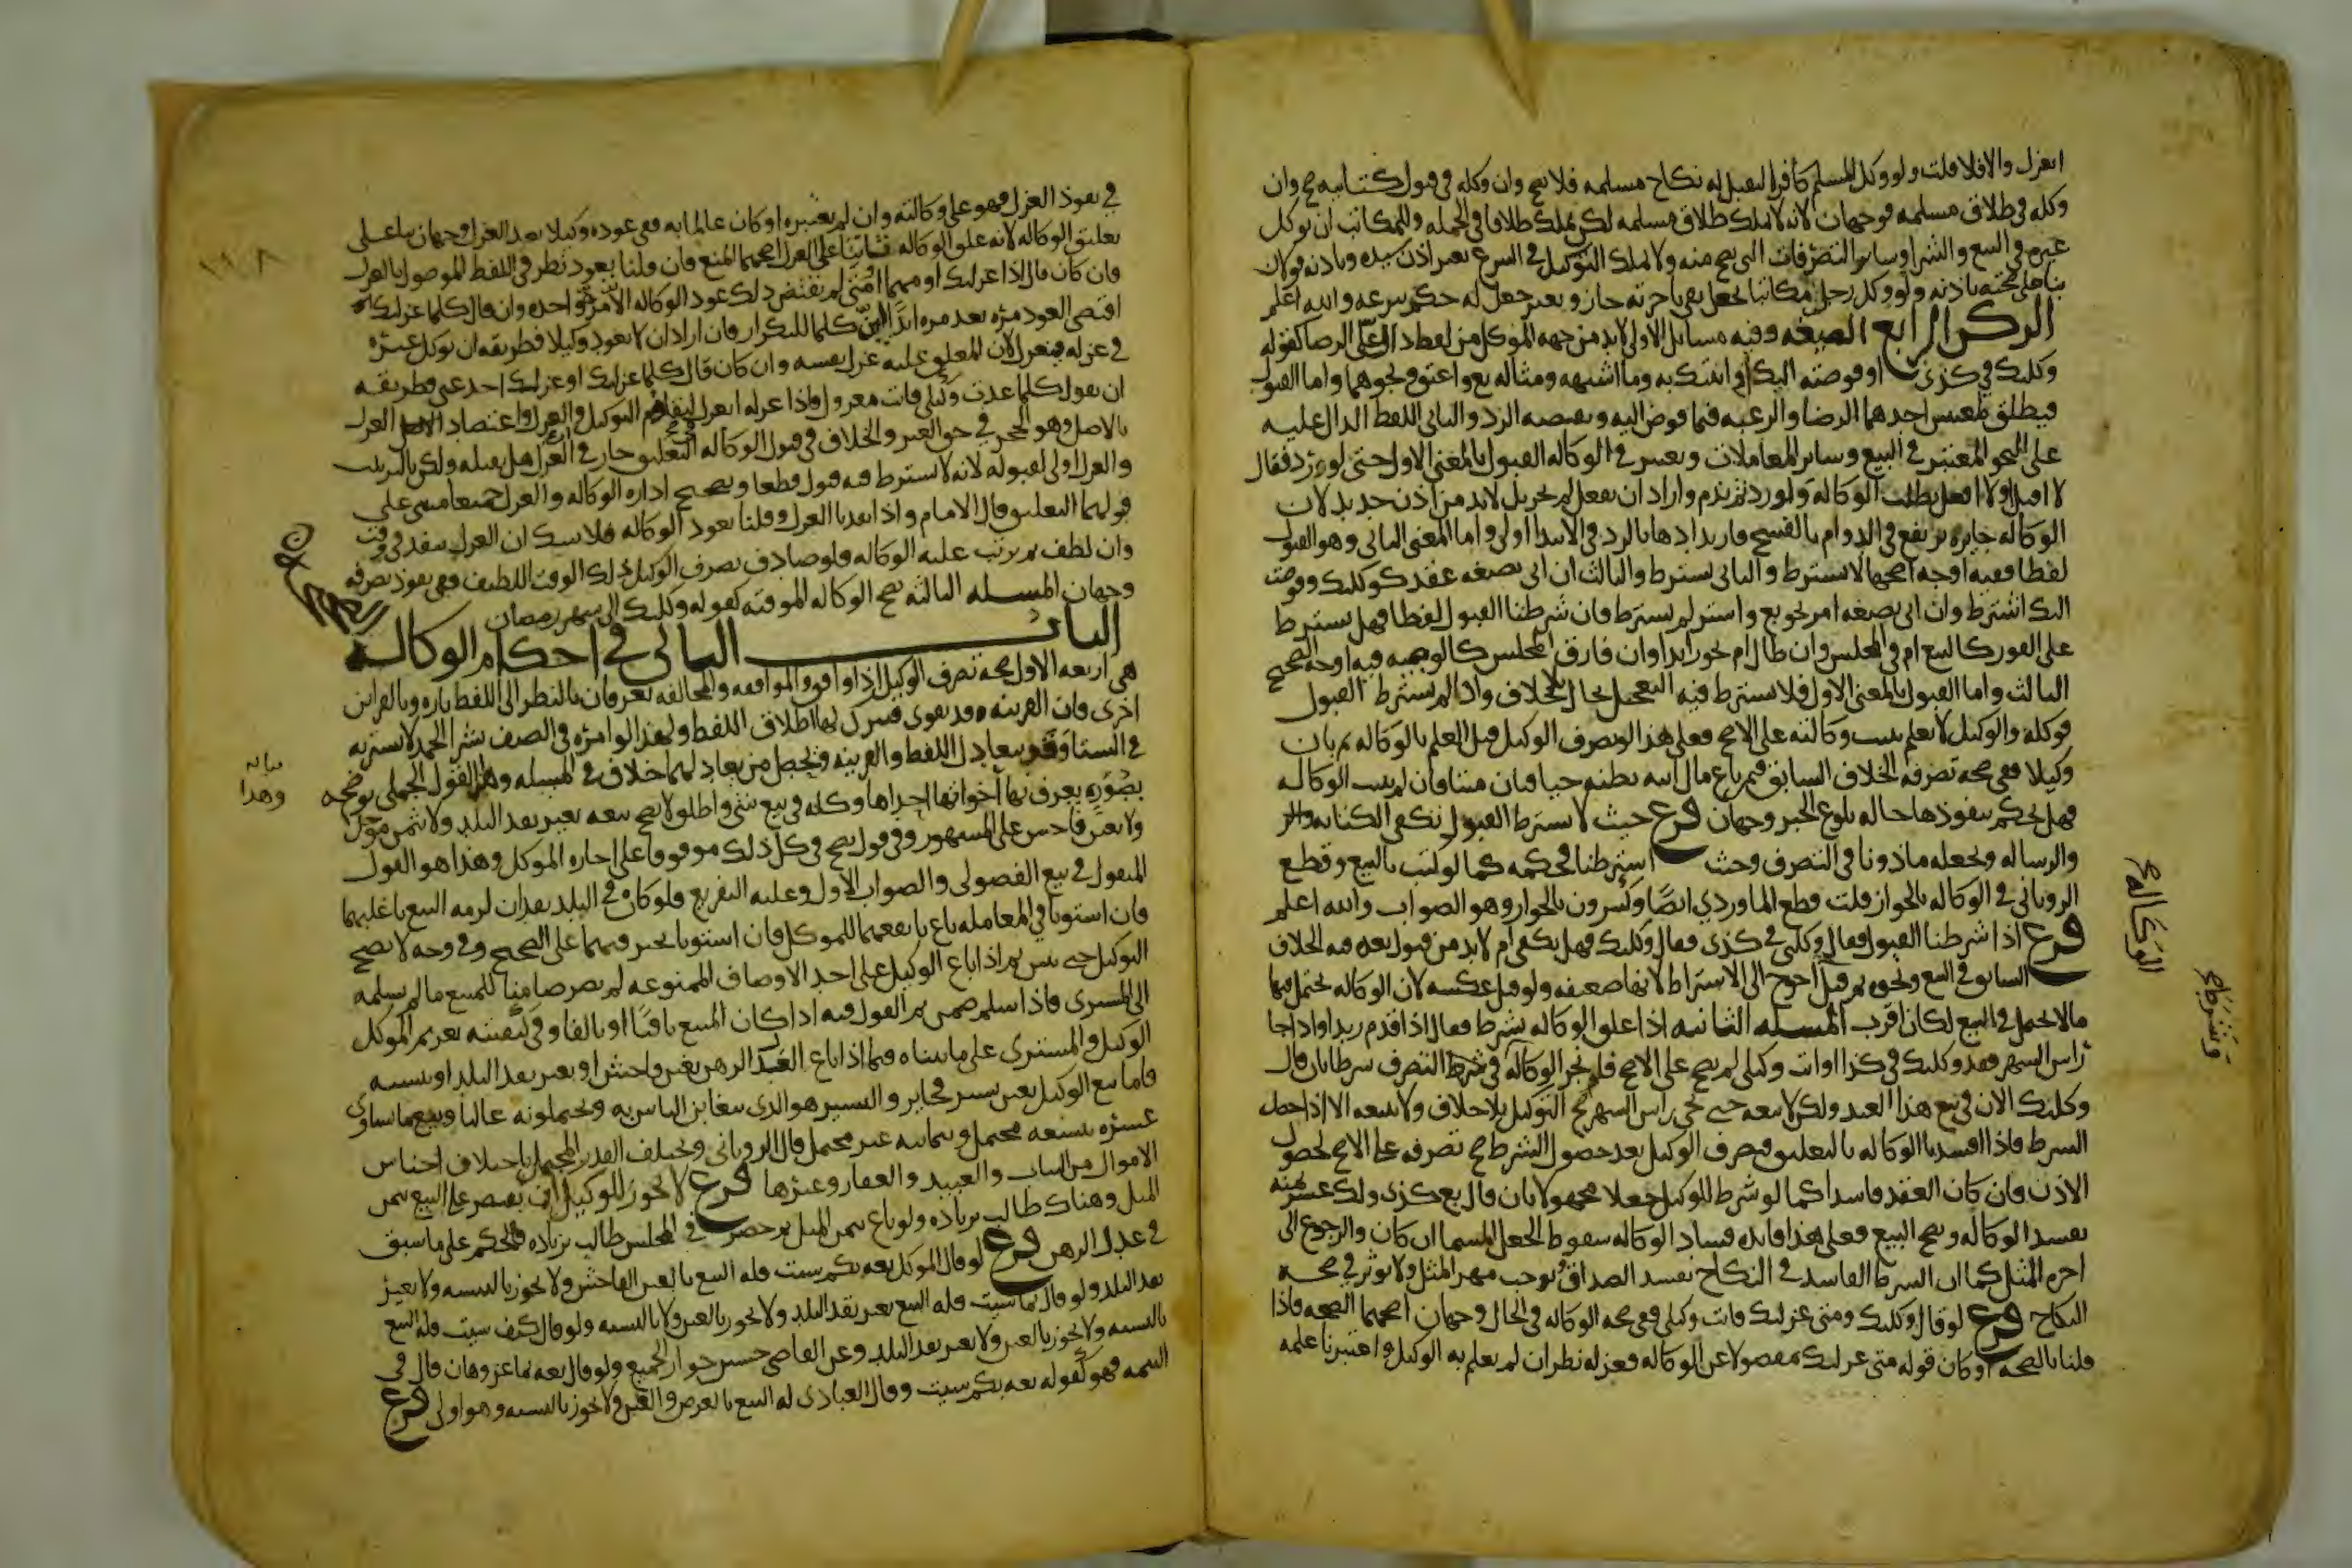 انعزل والا فلا قلت ولو وكل المسلم كافرا ليقبل له نكاح مسلمه فلا يصح وان وكله في قبول كتابيه صح وان
وكله في طلاق مسلمه فوجهان لانه لا يملك طلاق مسلمه لكن يملك طلاقا في الجمله وللمكاتب ان يوكل
غيره في البيع والشرا وساير التصرفات التي تصح منه ولا يملك التوكيل في التبرع بغير اذن سيده وباذنه قولان
بنا على صحته باذنه ولو وكل رجل مكاتبا بجعل يفي باجرته جاز وبغير جعل له حكم تبرعه والله اعلم
الركن الرابع الصيغه وفيه مسايل الاولى لابد من جهه الموكل من لفظ دال على الرضا كقوله
وكلتك في كذى او فوضته اليك او انبتك به وما اشبهه ومثاله بع واعتق ونحوهما واما القبول
فيطلق لمعنيين احدهما الرضا والرغبه فيما فوض اليه ونقيضه الرد والثاني اللفظ الدال عليه
على النحو المعتبر في البيع وساير المعاملات ويعتبر في الوكاله القبول بالمعنى الاول حتى لو رد فقال
لا اقبل او لا افعل بطلت الوكاله ولو رد ثم ندم واراد ان يفعل لم يجز بل لابد من اذن جديد لان
الوكاله جايزه ترتفع في الدوام بالفسخ فارتدادها بالرد في الابتدا اولى واما المعنى الثاني وهو القبول
لفظا ففيه اوجه اصحها لا يشترط والثاني يشترط والثالث ان اتى بصيغه عقد كوكلتك وفوضت
اليك اشترط وان اتى بصيغه امر نحو بع واشتر لم يشترط فان شرطنا القبول لفظا فهل يشترط
على الفور كالبيع ام في المجلس وان طال ام يجوز ابدا وان فارق المجلس كالوصيه فيه اوجه الصحيح
الثالث واما القبول بالمعنى الاول فلا يشترط فيه التعجيل بحال بلا خلاف واذا لم يشترط القبول
فوكله والوكيل لا يعلم ثبتت وكالته على الاصح فعلى هذا لو تصرف الوكيل قبل العلم بالوكاله ثم بان
وكيلا ففي صحه تصرفه الخلاف السابق فيمن باع مال ابيه يظنه حيا فبان ميتا فان لم تثبت الوكاله
فهل يحكم بنفوذها حاله بلوغ الخبر وجهان فرع حيث لا يشترط القبول تكفي الكتابه
والرساله ونجعله ماذونا في التصرف وحيث اشترطنا فحكمه كما لو كتب بالبيع وقطع
الروياني في الوكاله بالجواز قلت قطع الماوردي ايضا وكثيرون بالجواز وهو الصواب والله اعلم
فرع اذا شرطنا القبول فقال وكلني في كذى فقال وكلتك فهل يكفي ام لابد من قبول بعده فيه الخلاف
السابق في البيع ونحوه ثم قيل احوج الى الاشتراط لانها ضعيفه ولو قيل عكسه لان الوكاله يحتمل فيها
مالا يحتمل في البيع لكان اقرب المسله الثانيه اذا علق الوكاله بشرط فقال اذا قدم زيد او اذا جا
راس الشهر فقد وكلتك في كذا او انت وكيلي لم يصح على الاصح فلو نجز الوكاله في شرط التصرف شرطا بان قال
وكلتك الان في بيع هذا العبد ولكن لا تبعه حتى يجي راس الشهر صح التوكيل بلا خلاف ولا يبيعه الا اذا حصل
الشرط فاذا افسدنا الوكاله بالتعليق فتصرف الوكيل بعد حصول الشرط صح تصرفه على الاصح لحصول
الاذن فان كان العقد فاسدا كما لو شرط للوكيل جعلا مجهولا بان قال بع كذى ولك عشر ثمنه
تفسد الوكاله ويصح البيع فعلى هذا فايده فساد الوكاله سقوط الجعل المسما ان كان والرجوع الى
اجره المثل كما ان الشرط الفاسد في النكاح يفسد الصداق ويوجب مهر المثل ولا يوثر في صحه
النكاح فرع لو قال وكلتك ومتى عزلتك فانت وكيلي ففي صحه الوكاله في الحال وجهان اصحهما الصحه فاذا
قلنا بالصحه او كان قوله متى عزلتك مفصولا عن الوكاله فعزله نظر ان لم يعلم به الوكيل واعتبرنا علمه
الوكاله
وشرطه
في نفوذ العزل فهو على وكالته وان لم نعتبره او كان عالما به ففي عوده وكيلا بعد العزل وجهان بنا على
تعليق الوكاله لانه علق الوكاله ثانيا على العزل اصحهما المنع فان قلنا يعود نظر في اللفظ الموصول بالعزل
فان كان قال اذا عزلتك او مهما او متى لم يقتض ذلك عود الوكاله الا مره واحده وان قال كلما عزلتك
اقتضى العود مره بعد مره ابدا لان كلما للتكرار فان اراد ان لا يعود وكيلا فطريقه ان يوكل غيره
في عزله فينعزل لان المعلق عليه عزل نفسه وان كان قال كلما عزلتك او عزلك احد عني فطريقه
ان يقول كلما عدت وكيلي فانت معزول فاذا عزله انعزل لتقاوم التوكيل والعزل واعتضاد العزل
بالاصل وهو الحجر في حق الغير والخلاف في قبول الوكاله التعليق جار في العزل هل يقبله ولكن بالترتيب
والعزل اولى لقبوله لانه لا يشترط فيه قبول قطعا وتصحيح اداره الوكاله والعزل جميعا مبني على
قولهما التعليق قال الامام واذا نفذنا العزل وقلنا تعود الوكاله فلا شك ان العزل ينفذ في وقت
وان لطف ثم ترتب عليه الوكاله فلو صادف تصرف الوكيل ذلك الوقت اللطيف ففي نفوذ تصرفه
وجهان المسله الثالثه تصح الوكاله الموقته كقوله وكلتك الى شهر رمضان
الباب الثاني في احكام الوكاله
هي اربعه الاول صحه تصرف الوكيل اذا وافق والموافقه والمخالفه تعرفان بالنظر الى اللفظ تاره وبالقراين
اخرى فان القرينه قد تقوى فيترك لها اطلاق اللفظ ولهذا لو امره في الصيف بشرا الجمد لا يشتريه
في الشتا وقد يتعادل اللفظ والقرينه ويحصل من تعادلهما خلاف في المسله وهذا القول الجملي نوضحه
بصوره يعرف بها اخواتها احداها وكله في بيع شي واطلق لا يصح بيعه بغير نقد البلد ولا بثمن موجل
ولا بغبن فاحش على المشهور وفي قول يصح في كل ذلك موقوفا على اجازه الموكل وهذا هو القول
المنقول في بيع الفضولي والصواب الاول وعليه التفريع فلو كان في البلد نقدان لزمه البيع باغلبهما
فان استويا في المعامله باع بانفعهما للموكل فان استويا تخير فيهما على الصحيح وفي وجه لا يصح
التوكيل حتى يبين ثم اذا باع الوكيل على احد الاوصاف الممنوعه لم يصر ضامنا للمبيع ما لم يسلمه
الى المشتري فاذا سلم ضمن ثم القول فيه اذا كان المبيع باقيا او تالفا وفي كيفيته تغريم الموكل
الوكيل والمشتري على ما بيناه فيما اذا باع العدل الرهن بغبن فاحش او بغير نقد البلد او بنسيه
فاما بيع الوكيل بغبن يسير فجايز واليسير هو الذي يتغابن الناس به ويحتملونه غالبا وبيع ما يساوي
عشره بتسعه محتمل وبثمانيه غير محتمل قال الروياني ويختلف القدر المحتمل باختلاف اجناس
الاموال من الثياب والعبيد والعقار وغيرها فرع لا يجوز للوكيل ان يقتصر على البيع بثمن
المثل وهناك طالب بزياده ولو باع بثمن المثل ثم حضر في المجلس طالب بزياده فالحكم على ما سبق
في عدل الرهن فرع لو قال الموكل بعه بكم شيت فله البيع بالغبن الفاحش ولا يجوز بالنسيه ولا بغير
نقد البلد ولو قال بما شيت فله البيع بغير نقد البلد ولا يجوز بالغبن ولا بالنسيه ولو قال كيف شيت فله البيع
بالنسيه ولا يجوز بالغبن ولا بغير نقد البلد وعن القاضي حسين جواز الجميع ولو قال بعه بما عز وهان قال في
التتمه فهو كقوله بعه بكم شيت وقال العبادي له البيع بالعرض والغبن ولا يجوز بالنسيه وهو اولى فرع
وهذا